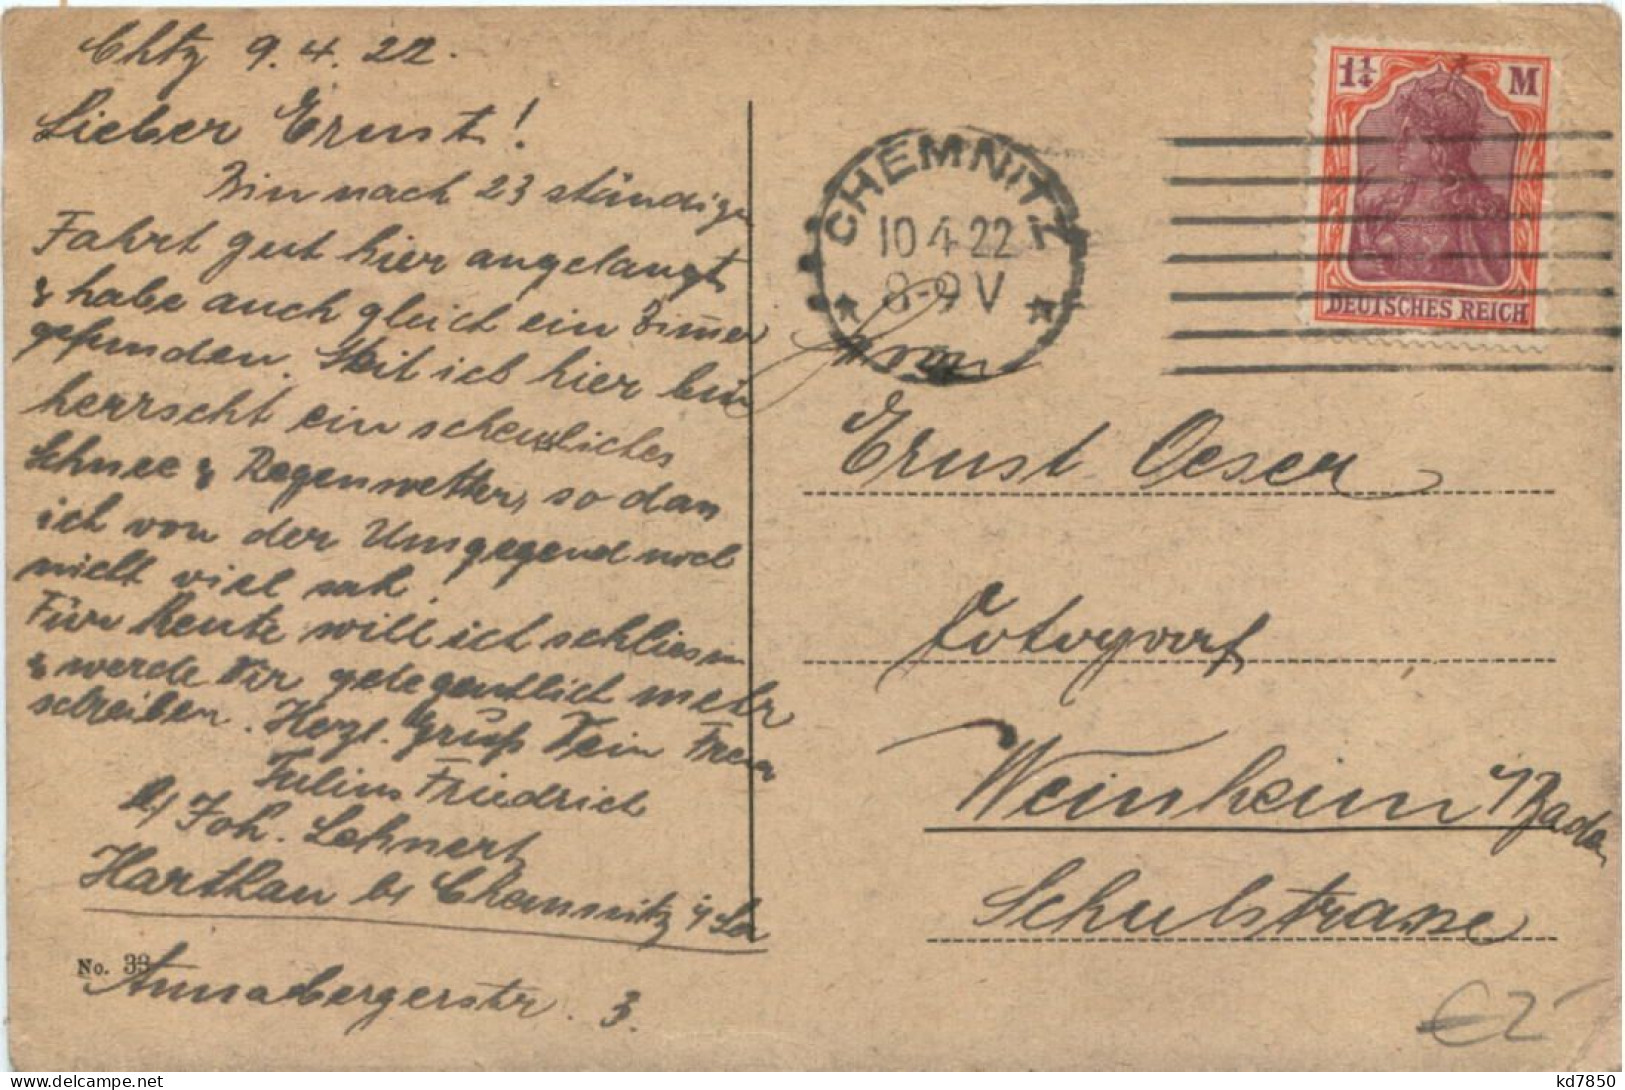 Chtz 9.4.22.
Lieber Ernst!
Bin nach 23 ständiger
Fahrt gut hier angelangt
& habe auch gleich ein Zimmer
gefunden. Seit ich hier bin
herrscht ein scheussliches
Schnee & Regenwetter, so dass
ich von der Umgegend noch
nicht viel sah.
Für heute will ich schliessen
& werde Dir gelegentlich mehr
schreiben. Herzl. Gruß Dein Freund
Julius Friedrich
b/ Joh. Lehnert
Harthau b/ Chemnitz i/Sa
No. 33
Annabergerstr. 3.
CHEMNITZ
10 4 22
8-9 V
1¼ M
DEUTSCHES REICH
Herrn
Ernst Oeser
Weinheim i/Baden
Schulstrasse
€2
kd7850